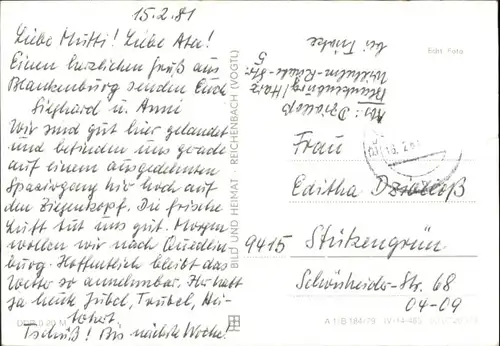 15.2.81
Liebe Mutti! Liebe Ata!
Einen herzlichen Gruß aus
Blankenburg senden Euch
Sieghard u. Anni
Wir sind gut hier gelandet
und befinden uns gerade
auf einem ausgedehnten
Spaziergang hier hoch auf
den Ziegenkopf. Die frische
Luft tut uns gut. Morgen
wollen wir nach Quedlin-
burg. Hoffentlich bleibt das
Wetter so annehmbar. Ihr habt
ja heute Jubel, Trubel, Hei-
terkeit
Tschüß! Bis nächste Woche!
BILD UND HEIMAT · REICHENBACH (VOGTL)
Echt Foto
Abs.: Dzialloß
Blankenburg/Harz
Wilhelm-Raabe-Str.
5
bei
Frau
Editha Dzialloß
9415 Stützengrün
Schönheider-Str. 68
04-09